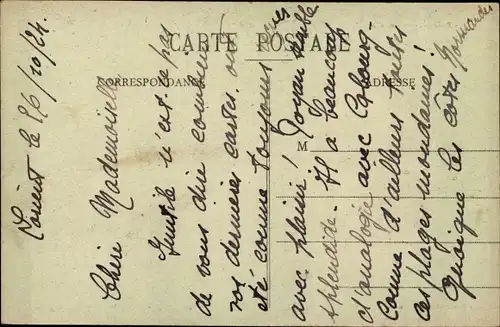 CARTE POSTALE
CORRESPONDANCE
ADRESSE
M
Lorient le 26/10/24.
Chère Mademoiselle
Inutile n'est-ce pas
de vous dire combien
vos dernières cartes ont
été comme toujours reçues
avec plaisir! Royan semble
splendide. Il a beaucoup
d'analogie avec Cabourg
comme d'ailleurs toutes
ces plages mondaines!
Quoique les côtes Normandes